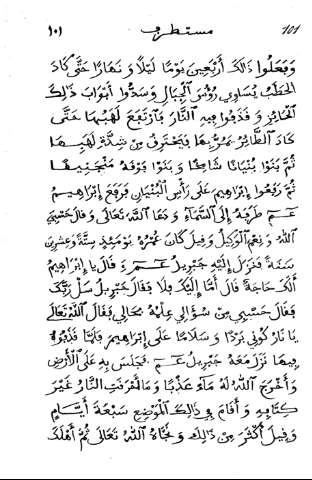 ١٠١ مستطرف 101
وبعلوا ذلك أربعين يومًا ليلًا ونهارًا حتّى كاد
الحطب يساوي رؤس الجبال وسدّوا أبواب ذلك
الحائر وقذفوا فيه النّار فارتفع لهبها حتّى
كاد الطّائر يمرّ بها فيحترق من شدّة لهبها
ثمّ بنوا بنيانًا شامخًا وبنوا فوقه منجنيقًا
ثمّ رفعوا إبراهيم على رأس البنيان فرفع إبراهيم
عم طرفه إلى السّماء ودعا اللّه تعالى وقال حسبي
اللّه ونعم الوكيل وقيل كان عمره يومئذ ستّة وعشرين
سنة فنزل إليه جبريل عم وقال يا إبراهيم
ألك حاجة قال أمّا إليك فلا فقال جبريل سل ربّك
فقال حسبي من سؤالي علمه بحالي فقال اللّه تعالى
يا نار كوني بردًا وسلامًا على إبراهيم فلمّا قذفوه
فيها نزل معه جبريل عم فجلس به على الأرض
وأخرج اللّه له ماء عذبًا وما أحرقت النّار غير
كتافه وأقام في ذلك الموضع سبعة أيّام
وقيل أكثر من ذلك ونجاه اللّه تعالى ثمّ أهلك